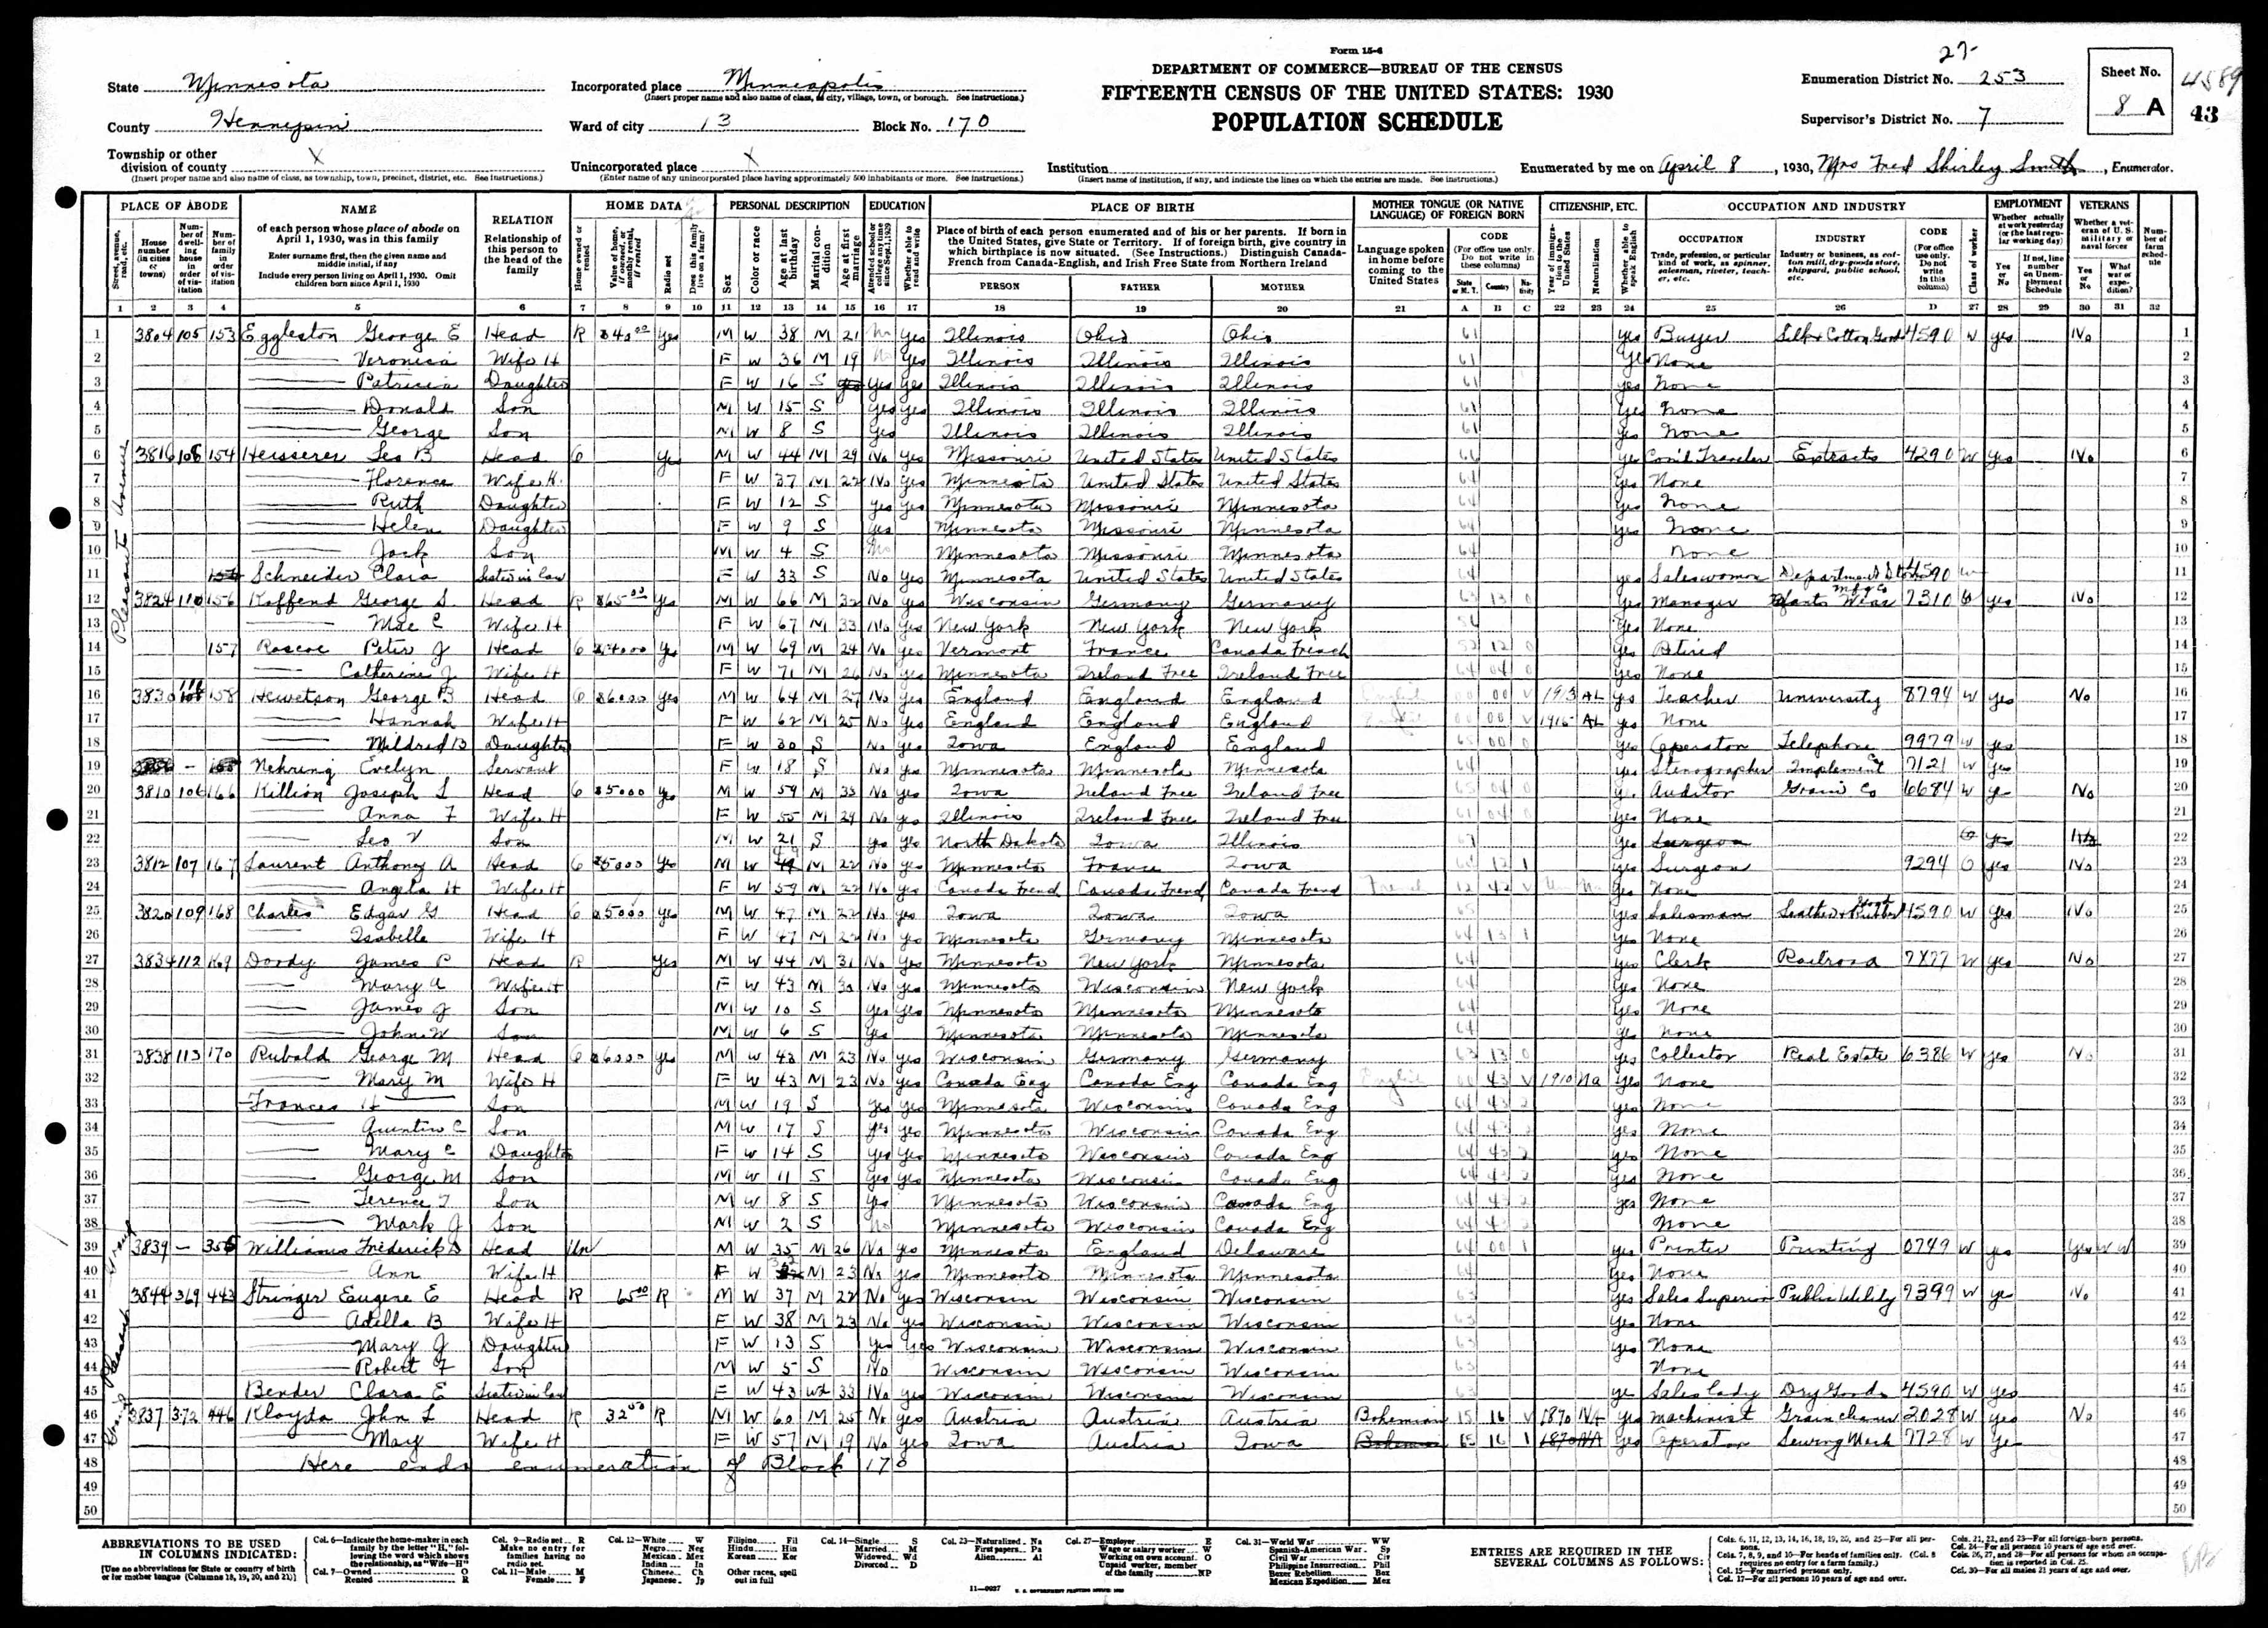 Form 15-6
DEPARTMENT OF COMMERCE—BUREAU OF THE CENSUS
FIFTEENTH CENSUS OF THE UNITED STATES: 1930
POPULATION SCHEDULE
State Minnesota
County Hennepin
Township or other division of county X
(Insert proper name and also name of class, as township, town, precinct, district, etc. See instructions.)
Incorporated place Minneapolis
(Insert proper name and also name of class, as city, village, town, or borough. See instructions.)
Ward of city 13 Block No. 170
Unincorporated place X
(Enter name of any unincorporated place having approximately 500 inhabitants or more. See instructions.)
Institution
(Insert name of institution, if any, and indicate the lines on which the entries are made. See instructions.)
27-
Enumeration District No. 253
Supervisor's District No. 7
Sheet No. 8 A
4589
43
Enumerated by me on April 8, 1930, Mrs Fred Shirley Smith, Enumerator.
PLACE OF ABODE NAME RELATION HOME DATA PERSONAL DESCRIPTION EDUCATION PLACE OF BIRTH MOTHER TONGUE (OR NATIVE LANGUAGE) OF FOREIGN BORN CITIZENSHIP, ETC. OCCUPATION AND INDUSTRY EMPLOYMENT VETERANS
PERSON FATHER MOTHER CODE OCCUPATION INDUSTRY CODE
1 2 3 4 5 6 7 8 9 10 11 12 13 14 15 16 17 18 19 20 21 A B C 22 23 24 25 26 D 27 28 29 30 31 32
Pleasant Avenue
1 3804 105 153 Eggleston George E Head R $40.00 Yes M W 38 M 21 No Yes Illinois Ohio Ohio 61 Yes Buyer Silk & Cotton Goods 4590 W Yes No 1
2 Veronica Wife H F W 36 M 19 No Yes Illinois Illinois Illinois 61 Yes None 2
3 Patricia Daughter F W 16 S Yes Yes Illinois Illinois Illinois 61 Yes None 3
4 Donald Son M W 15 S Yes Yes Illinois Illinois Illinois 61 Yes None 4
5 George Son M W 8 S Yes Illinois Illinois Illinois 61 Yes None 5
6 3816 108 154 Heisserer Leo B Head O Yes M W 44 M 29 No Yes Missouri United States United States 66 Yes Com'l Traveler Extracts 4290 W Yes No 6
7 Florence Wife H F W 37 M 22 No Yes Minnesota United States United States 64 Yes None 7
8 Ruth Daughter F W 12 S Yes Yes Minnesota Missouri Minnesota 64 Yes None 8
9 Helen Daughter F W 9 S Yes Minnesota Missouri Minnesota 64 Yes None 9
10 Jack Son M W 4 S No Minnesota Missouri Minnesota 64 None 10
11 Schneider Clara Sister in law F W 33 S No Yes Minnesota United States United States 64 Yes Saleswoman Department Store 4590 W 11
12 3824 110 156 Koffend George S. Head R $65.00 Yes M W 66 M 32 No Yes Wisconsin Germany Germany 63 13 0 Yes Manager Infants Wear Mfg Co 7310 Yes No 12
13 Mae C Wife H F W 67 M 33 No Yes New York New York New York 56 Yes None 13
14 157 Roscoe Peter J Head O $4000 Yes M W 69 M 24 No Yes Vermont France Canada French 52 12 0 Yes Retired 14
15 Catherine J Wife H F W 71 M 26 No Yes Minnesota Ireland Free Ireland Free 64 04 0 Yes None 15
16 3830 111 158 Hewetson George B Head O $6000 Yes M W 64 M 27 No Yes England England England English 00 00 V 1913 AL Yes Teacher University 8794 W Yes No 16
17 Hannah Wife H F W 62 M 25 No Yes England England England 00 00 V 1915 AL Yes None 17
18 Mildred B Daughter F W 30 S No Yes Iowa England England 65 00 0 Yes Operator Telephone 9979 W Yes 18
19 Nehring Evelyn Servant F W 18 S No Yes Minnesota Minnesota Minnesota 64 Yes Stenographer Implement Co 7121 W Yes 19
20 3810 106 166 Killion Joseph L Head O $5000 Yes M W 59 M 33 No Yes Iowa Ireland Free Ireland Free 65 04 0 Yes Auditor Grain Co 6684 W Yes No 20
21 Anna F Wife H F W 55 M 29 No Yes Illinois Ireland Free Ireland Free 61 04 0 Yes None 21
22 Leo V Son M W 21 S Yes Yes North Dakota Iowa Illinois 67 Yes Surgeon O Yes No 22
23 3812 107 167 Laurent Anthony A Head O $5000 Yes M W 49 M 22 No Yes Minnesota France Iowa 64 12 1 Yes Surgeon 9294 O Yes No 23
24 Angela H Wife H F W 59 M 22 No Yes Canada Frend Canada Frend Canada Frend French 12 42 V Un Un Yes None 24
25 3820 109 168 Charles Edgar G Head O $5000 Yes M W 47 M 22 No Yes Iowa Iowa Iowa 65 Yes Salesman Leather & Rubber 4590 W Yes No 25
26 Isabelle Wife H F W 47 M 22 No Yes Minnesota Germany Minnesota 64 13 1 Yes None 26
27 3834 112 169 Doody James P Head R Yes M W 44 M 31 No Yes Minnesota New York Minnesota 64 Yes Clerk Railroad 7X77 W Yes No 27
28 Mary A Wife H F W 43 M 30 No Yes Minnesota Wisconsin New York 64 Yes None 28
29 James J Son M W 10 S Yes Yes Minnesota Minnesota Minnesota 64 Yes None 29
30 John W Son M W 6 S Yes Minnesota Minnesota Minnesota 64 Yes None 30
31 3838 113 170 Rubald George M Head O $6000 Yes M W 43 M 23 No Yes Wisconsin Germany Germany 63 13 0 Yes Collector Real Estate 6386 W Yes No 31
32 Mary M Wife H F W 43 M 23 No Yes Canada Eng Canada Eng Canada Eng English 43 V 1910 Na Yes None 32
33 Frances H Son M W 19 S Yes Yes Minnesota Wisconsin Canada Eng 64 43 2 Yes None 33
34 Quentin C Son M W 17 S Yes Yes Minnesota Wisconsin Canada Eng 64 43 2 Yes None 34
35 Mary C Daughter F W 14 S Yes Yes Minnesota Wisconsin Canada Eng 64 43 2 Yes None 35
36 George M Son M W 11 S Yes Yes Minnesota Wisconsin Canada Eng 64 43 2 Yes None 36
37 Terence T Son M W 8 S Yes Minnesota Wisconsin Canada Eng 64 43 2 Yes None 37
38 Mark J Son M W 2 S No Minnesota Wisconsin Canada Eng 64 43 2 None 38
39 3839 — 356 Williams Frederick D Head Un M W 35 M 26 No Yes Minnesota England Delaware 64 00 1 Yes Printer Printing 0749 W Yes Yes W W 39
40 Ann Wife H F W 32 M 23 No Yes Minnesota Minnesota Minnesota 64 Yes None 40
41 3844 369 443 Stringer Eugene E Head R 65.00 R M W 37 M 22 No Yes Wisconsin Wisconsin Wisconsin 63 Yes Sales Supervisor Public Utility 7399 W Yes No 41
42 Adella B Wife H F W 38 M 23 No Yes Wisconsin Wisconsin Wisconsin 63 Yes None 42
43 Mary J Daughter F W 13 S Yes Yes Wisconsin Wisconsin Wisconsin 63 Yes None 43
44 Robert F Son M W 5 S No Wisconsin Wisconsin Wisconsin 63 None 44
45 Bender Clara E Sister in law F W 43 Wd 33 No Yes Wisconsin Wisconsin Wisconsin 63 Ye Saleslady Dry Goods 4590 W Yes 45
46 3837 372 446 Kloyda John L Head R 32.50 R M W 60 M 25 No Yes Austria Austria Austria Bohemian 15 16 V 1870 NA Yes Machinist Grain cleaner 2028 W Yes No 46
47 May Wife H F W 57 M 19 No Yes Iowa Austria Iowa Bohemian 65 16 1 1870 NA Yes Operator Sewing Mach 7728 W Ye 47
48 Here ends enumeration of Block 170 48
49 49
50 50
ABBREVIATIONS TO BE USED IN COLUMNS INDICATED:
[Use no abbreviations for State or country of birth or for mother tongue (Columns 18, 19, 20, and 21)]
Col. 6—Indicate the home-maker in each family by the letter "H," following the word which shows the relationship, as "Wife—H"
Col. 7—Owned O Rented R
Col. 9—Radio set R Make no entry for families having no radio set.
Col. 11—Male M Female F
Col. 12—White W Negro Neg Mexican Mex Indian In Chinese Ch Japanese Jp Filipino Fil Hindu Hin Korean Kor Other races, spell out in full
Col. 14—Single S Married M Widowed Wd Divorced D
Col. 23—Naturalized Na First papers Pa Alien Al
Col. 27—Employer E Wage or salary worker W Working on own account O Unpaid worker, member of the family NP
Col. 31—World War WW Spanish-American War Sp Civil War Civ Philippine Insurrection Phil Boxer Rebellion Box Mexican Expedition Mex
ENTRIES ARE REQUIRED IN THE SEVERAL COLUMNS AS FOLLOWS:
Cols. 6, 11, 12, 13, 14, 16, 18, 19, 20, and 25—For all persons.
Cols. 7, 8, 9, and 10—For heads of families only. (Col. 8 requires no entry for a farm family.)
Col. 15—For married persons only.
Col. 17—For all persons 10 years of age and over.
Cols. 21, 22, and 23—For all foreign-born persons.
Col. 24—For all persons 10 years of age and over.
Cols. 26, 27, and 28—For all persons for whom an occupation is reported in Col. 25.
Col. 30—For all males 21 years of age and over.
11—9927 U. S. GOVERNMENT PRINTING OFFICE